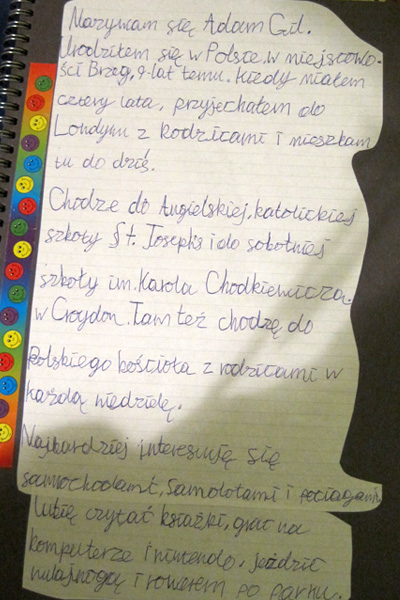 Nazywam się Adam Gil.
Urodziłem się w Polsce, w miejscowo-
ści Brzeg, 9-lat temu. Kiedy miałem
cztery lata, przyjechałem do
Londynu z rodzicami i mieszkam
tu do dziś.
Chodzę do Angielskiej, katolickiej
szkoły St. Joseph's i do sobotniej
szkoły im. Karola Chodkiewicza
w Croydon. Tam też chodzę do
Polskiego kościoła z rodzicami w
każdą niedzielę.
Najbardziej interesuję się
samochodami, samolotami i pociagami
Lubię czytać książki, grać na
komputerze i nintendo, jeździć
hulajnogą i rowerem po parku.